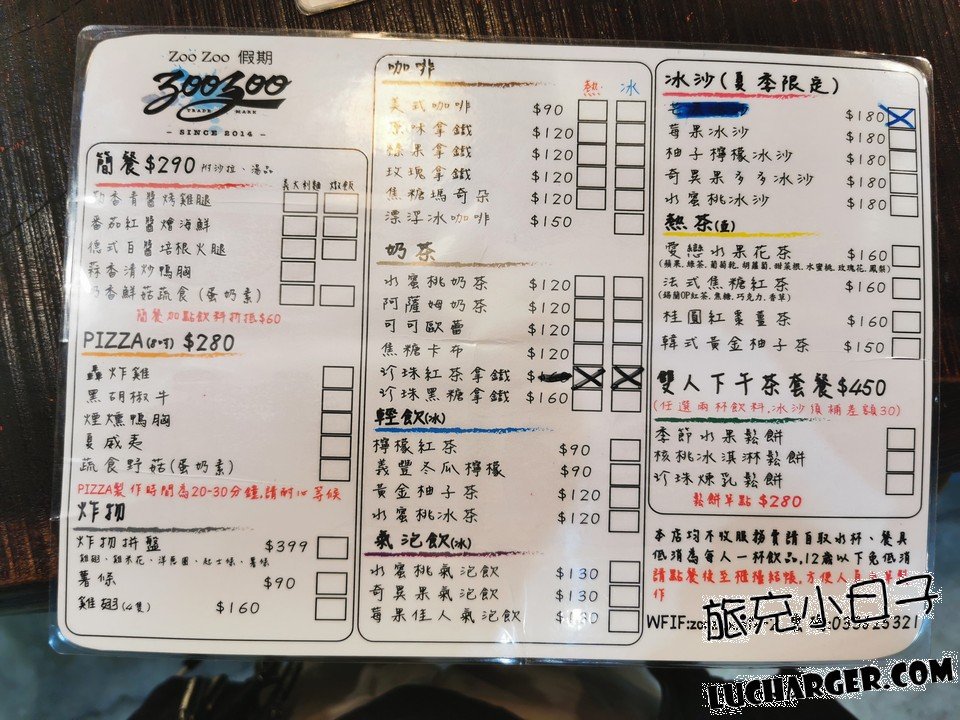 Zoo Zoo 假期
zoozoo
TRADE MARK
- SINCE 2014 -
簡餐$290 附沙拉、湯品
義大利麵 燉飯
香青醬烤雞腿
番茄紅醬燴海鮮
德式白醬培根火腿
蒜香清炒鴨胸
奶香鮮菇蔬食(蛋奶素)
簡餐加點飲料折抵$60
PIZZA(8吋) $280
轟炸雞
黑胡椒牛
煙燻鴨胸
夏威夷
蔬食野菇(蛋奶素)
PIZZA製作時間為20-30分鐘,請耐心等候
炸物
炸物拼盤 $399
雞翅、雞米花、洋蔥圈、起士條、薯條
薯條 $90
雞翅(4隻) $160
咖啡
熱 冰
美式咖啡 $90
原味拿鐵 $120
榛果拿鐵 $120
玫瑰拿鐵 $120
焦糖瑪奇朵 $120
漂浮冰咖啡 $150
奶茶
水蜜桃奶茶 $120
阿薩姆奶茶 $120
可可歐蕾 $120
焦糖卡布 $120
珍珠紅茶拿鐵
珍珠黑糖拿鐵 $160
輕飲(冰)
檸檬紅茶 $90
義豐冬瓜檸檬 $90
黃金柚子茶 $120
水蜜桃冰茶 $120
氣泡飲(冰)
水蜜桃氣泡飲 $130
奇異果氣泡飲 $130
莓果佳人氣泡飲 $130
冰沙(夏季限定)
$180
莓果冰沙 $180
柚子檸檬冰沙 $180
奇異果多多冰沙 $180
水蜜桃冰沙 $180
熱茶(壺)
愛戀水果花茶 $160
(蘋果.綠茶.葡萄乾.胡蘿蔔.甜菜根.水蜜桃.玫瑰花.鳳梨)
法式焦糖紅茶 $160
(錫蘭OP紅茶.焦糖.巧克力.香草)
桂圓紅棗薑茶 $160
韓式黃金柚子茶 $150
雙人下午茶套餐$450
(任選兩杯飲料,冰沙須補差額30)
季節水果鬆餅
核桃冰淇淋鬆餅
珍珠煉乳鬆餅
鬆餅單點 $280
本店均不收服務費請自取水杯、餐具
低消為每人一杯飲品,12歲以下免低消
請點餐後至櫃檯結帳,方便人員
作
WFIF:zo
旅充小日子
LUCHARGER.COM